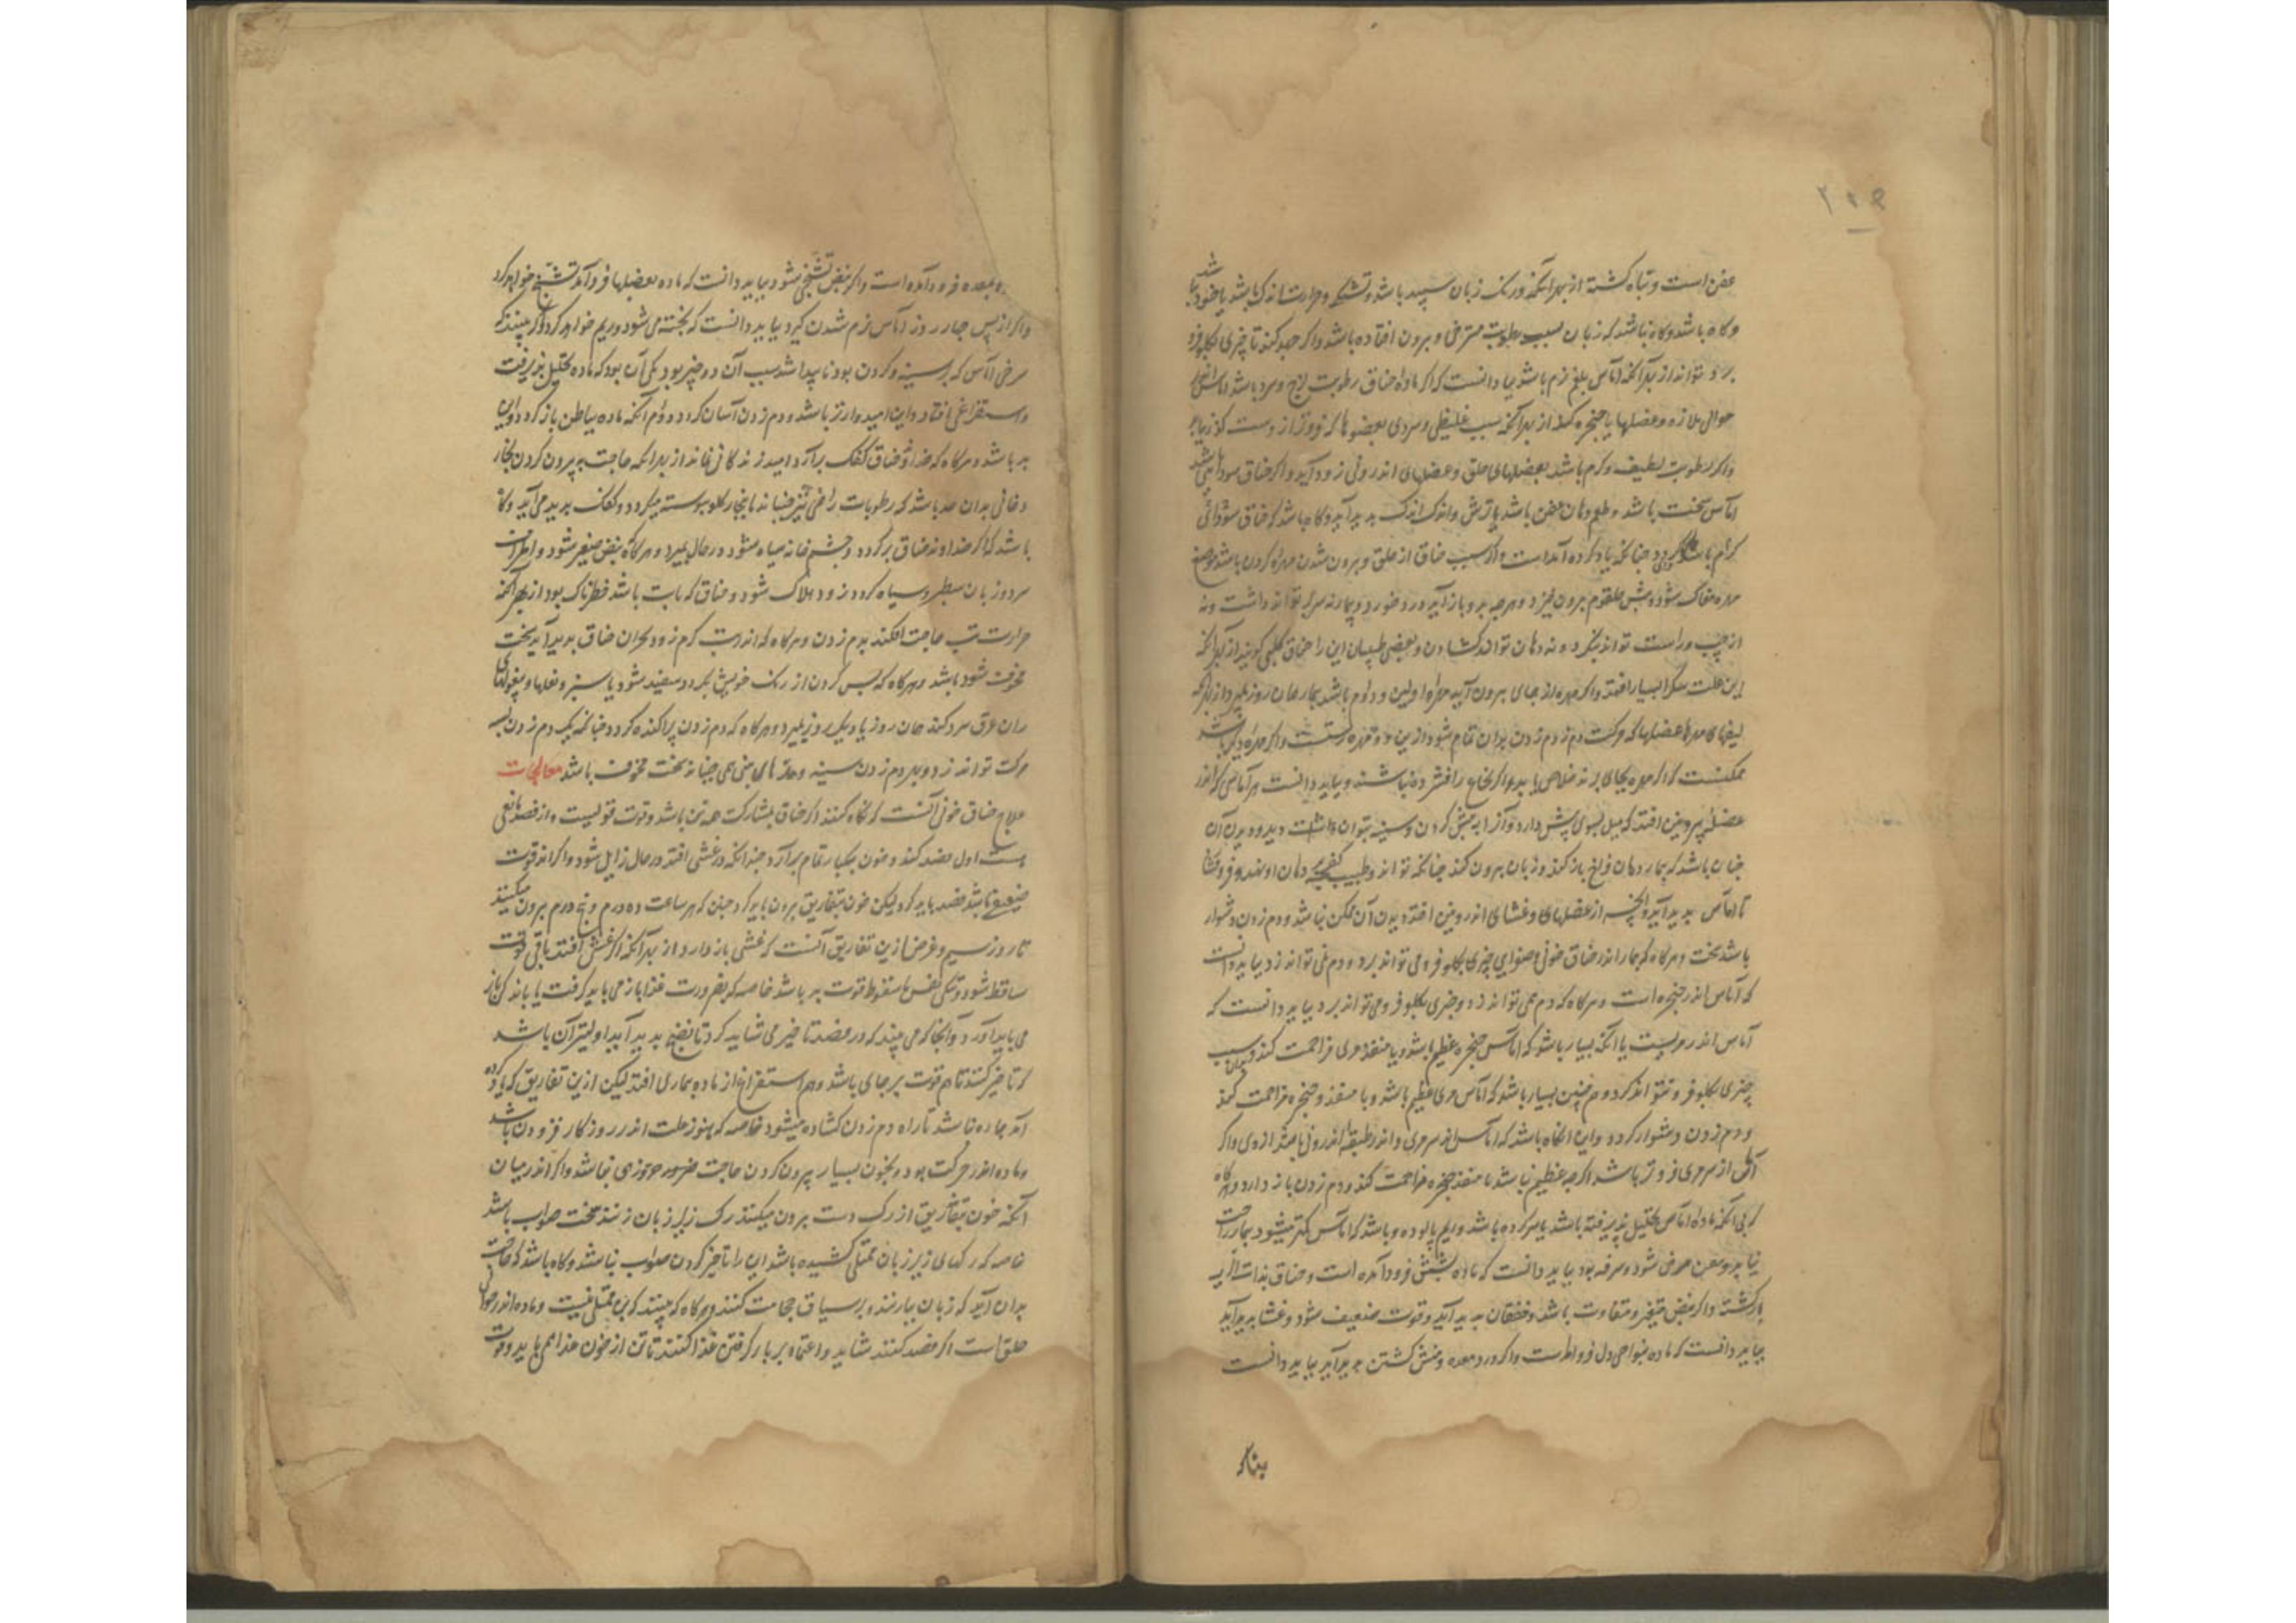 ۲۵۹
عفن است و تباه گشته از بهر آنکه و رنک زبان سپید باشد و تشنکی و حرارت اندک باشد یا خود نباشد
و کاه باشد و کاه نباشد که زبان بسبب رطوبت مسترخی و برون افتاده باشد و اکر جهد کند تا چیزی بکلو فرو
برد تواند از بهر آنکه آماس بلغم نرم باشد بباید دانست که اکر ماده خناق رطوبت لزج و سرد باشد آماس اندر
حوالی ملازه و عضلهای حنجره کند از بهر آنکه بسبب غلیظی و سردی بعضوها که فروتر از وست کذر نیابد
و اکر رطوبت لطیف و کرم باشد بعضلهای حلق و عضلهای اندرونی فرود آید و اکر خناق سودائی باشد
آماس سخت باشد و طعم دهان عفن باشد یا ترش و اندک اندک پدید آید و کاه باشد که خناق سودائی
کرم باشد کردد چنانکه یاد کرده آمد است و اکر سبب خناق از حلق و برون شدن مهره کردن باشد موضع
مهره مغاک شود و پیش حلقوم برون خیزد و هرچه بدو باز آید درد خورد و بیمار نه سر تواند داشت و نه
از چپ و راست تواند نکرد و نه دهان تواند کشادن و بعضی طبیبان این را خناق کلبی کویند از بهر آنکه
این علت سک را بسیار افتد و اکر مهره از جای برون آید مهره اولین و دوم باشد بیمار همان روز بمیرد از بهر آنکه
لیفهای مهرها عضلها که حرکت دم زدن بدان تمام شود ازین دو مهره رستست و اکر مهره دیکر باشد
ممکنست که اکر مهره بجای برند خلاص یابد و اکر نخاع را فشرده نباشند و بباید دانست هر آماسی که اندر
عضله بیرونین افتد که میل بسوی پیش دارد و آنرا به پیش کردن و سینه بتوان دانست و دید و دیدن آن
چنان باشد که بیمار دهان فراخ باز کند و زبان برون کند چنانکه تواند و طبیب کفچه دهان او نهد و فرو فشارد
تا آماس پدید آید و آنچه از عضلهای و غشای اندرونین افتد دیدن آن ممکن نباشد و دم زدن دشوار
باشد سخت و هرکاه که بیمار اندر خناق خونی و صفرایی چیزی بکلو فرو می تواند برد و دم نمی تواند زد بباید دانست
که آماس اندر حنجره است و هرکاه که دم همی تواند زد و چیزی بکلو فرو نمی تواند برد بباید دانست که
آماس اندر مریست یا آنکه بسیار باشد که آماس حنجره عظیم باشد و با منفذ مری مزاحمت کند و بدان سبب
چیزی بکلو فرو نتواند کرد و هم چنین بسیار باشد که آماس مری عظیم باشد و با منفذ و حنجره مزاحمت کند
و دم زدن دشوار کردد و این انکاه باشد که آماس اندر سر مری و اندر طبقه اندرونی باشد از وی و اکر
آماس از سر مری فروتر باشد اکر چه عظیم باشد با منفذ حنجره مزاحمت کند و دم زدن باز دارد و هرکاه
که بی آنکه ماده آماس تحلیل پذیرفته باشد یا سر کرده باشد و ریم پالوده و باشد که آماس کمتر میشود و بیمار راحت
نیابد و سرفه بود بباید دانست که ماده بشش فرود آمده است و خناق بذات الریه
بازکشته و اکر نبض متغیر و متفاوت باشد و خفقان پدید آید و قوت ضعیف شود و غشا پدید آید
بباید دانست که ماده بنواحی دل فرو است و اکر درد معده و منش کشتن پدید آید بباید دانست
بمعده فرود آمده است و اکر نبض تشنجی شود بباید دانست که ماده بعضلها فرود آمد تشنج خواهد کرد
و اکر از پس چهار روز آماس نرم شدن کیرد بباید دانست که پخته می شود و ریم خواهد کرد و اکر بینند که
سرخی آماس که بر سینه و کردن بود ناپیدا شد سبب آن دو چیز بود یکی آن بود که ماده تحلیل پذیرفت
و استفراغی افتاد و این امیدوارتر باشد و دم زدن آسان کردد و دوم آنکه ماده بباطن باز کردد و این
بد باشد و هرکاه که خداوند خناق کفک برآرد امید زندکانی نماند از بهر آنکه حاجت به بیرون کردن بخار
دخانی بدان حد باشد که رطوبات را می جنباند تا بخار کلو پیوسته میکردد و کفک پدید می آید و کاه
باشد که اکر خداوند خناق بر کردد و چشم خانه سیاه شود در حال بمیرد و هرکاه نبض صغیر شود و اطراف
سرد و زبان سطبر و سیاه کردد زود هلاک شود و خناق که با تب باشد خطرناک بود از بهر آنکه
حرارت تب حاجت افکند بدم زدن و هرکاه که اندر تب کرم زود بحران خناق پدید آید سخت
مخوف باشد و هرکاه که پس کردن از رنک خویش بکردد سفید شود یا سبز و بغلها و پیغولهای
ران عرق سرد کند همان روز یا دیکر روز بمیرد و هرکاه که دم زدن پراکنده کردد چنانکه بیک دم زدن بسه
حرکت تواند زد و بهر دم زدن سینه و پرهای بینی می جنباند سخت مخوف باشد معالجات
علاج خناق خونی آنست که نکاه کنند اکر خناق بمشارکت همه تن باشد و قوت قویست و از فصد مانعی
نیست اول فصد کنند و خون بیکبار تمام برآرد چندانکه در غشی افتد در حال زایل شود و اکر اندر قوت
ضعیف باشد فصد باید کرد لیکن خون بتفاریق برون باید کرد چنان که هر ساعت ده درم و پنج درم برون میکنند
تا روز سیم و غرض ازین تفاریق آنست که غشی باز دارد از بهر آنکه اکر غشی افتد باقی قوت
ساقط شود و تنکی نفس با سقوط قوت بد باشد خاصه که بضرورت غذا باز می باید کرفت یا باندک باز
می باید آورد و آنجا که می بیند که در فصد تاخیر می شاید کرد تا نضج پدید آید اولیتر آن باشد
که تاخیر کنند تا هم قوت بر جای باشد و هم استفراغ از ماده بیماری افتد لیکن ازین تفاریق که یاد کرده
آمد چاره نباشد تا راه دم زدن کشاده میشود خاصه که هنوز علت اندر روزکار فزودن باشد
و ماده اندر حرکت بود و بخون بسیار بیرون کردن حاجت ضرور نباشد و اکر اندر میان
آنکه خون بتفاریق از رک دست برون میکنند رک زیر زبان زنند سخت صواب باشد
خاصه که رکهای زیر زبان ممتلی کشیده باشد این را تاخیر کردن صواب نباشد و کاه باشد که حاجت
بدان آید که زبان بیازنند و بر ساق حجامت کنند و هرکاه که بینند که تن ممتلی نیست و ماده اندر حوالی
حلق است اکر فصد کنند شاید و اعتماد بر باز کرفتن غذا کنند تا تن از خون غذا همی یابد و قوت